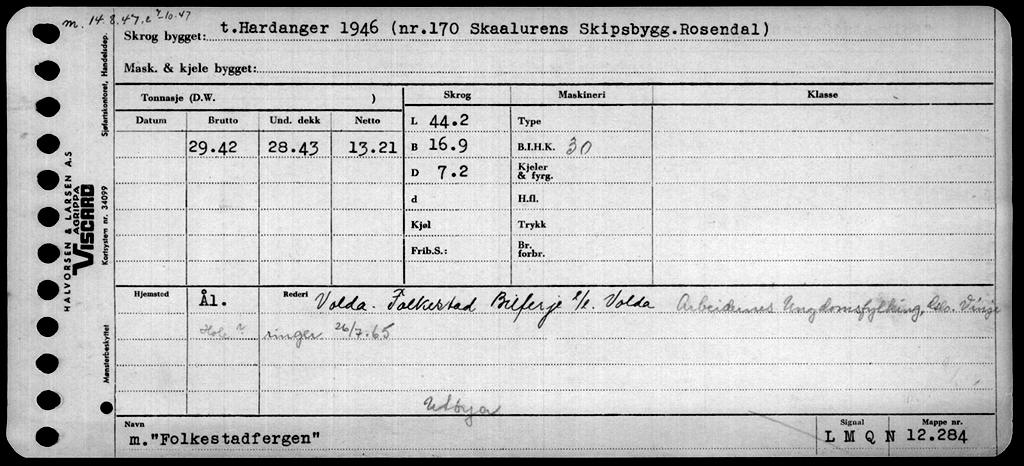 m. 14.8.47.
Skrog bygget: t.Hardanger 1946 (nr.170 Skaalurens Skipsbygg.Rosendal)
Mask. & kjele bygget:
Tonnasje (D.W. ) Skrog Maskineri Klasse
Datum Brutto Und. dekk Netto L 44.2 Type
29.42 28.43 13.21 B 16.9 B.I.H.K. 30
D 7.2 Kjeler & fyrg.
d H.fl.
Kjøl Trykk
Frib.S.: Br. forbr.
Hjemsted Ål. Rederi Volda - Folkestad Bilferje Volda Arbeidernes Ungdomsfylking, Oslo.
Hole 26/7-65
Utøya
Navn Signal Mappe nr.
m."Folkestadfergen" L M Q N 12.284
Sjøfartskontoret, Handelsdep.
HALVORSEN & LARSEN A.S
AGRIPPA
VISCARD
Kortsystem nr. 34099
Mønsterbeskyttet